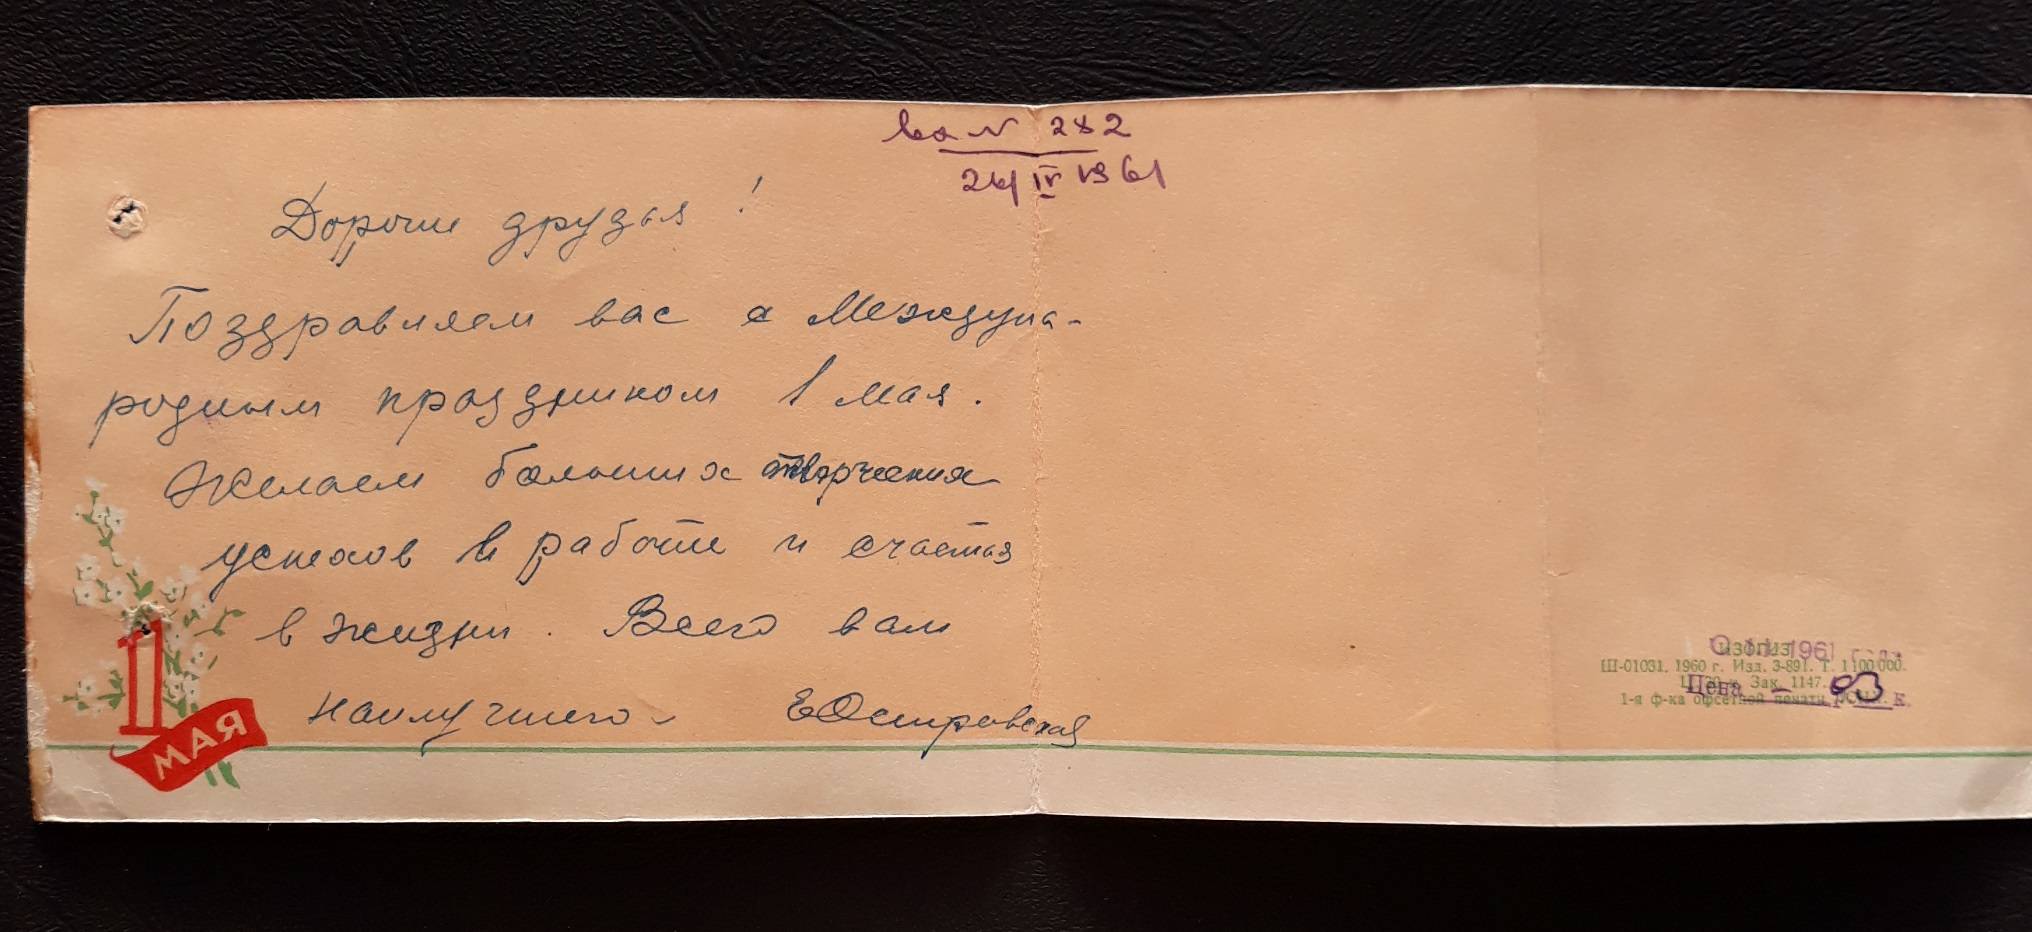 вх N 282
24/IV 1961
Дорогие друзья!
Поздравляем вас с Междуна-
родным праздником 1 мая.
Желаем больших творческих
успехов в работе и счастья
в жизни. Всего вам
наилучшего - ЕОстровская
1
МАЯ
ИЗОГИЗ
1961 года
Ш-01031. 1960 г. Изд. 3-891. Т. 1 100 000.
Зак. 1147.
Цена - 03 к.
1-я ф-ка офсетной печати